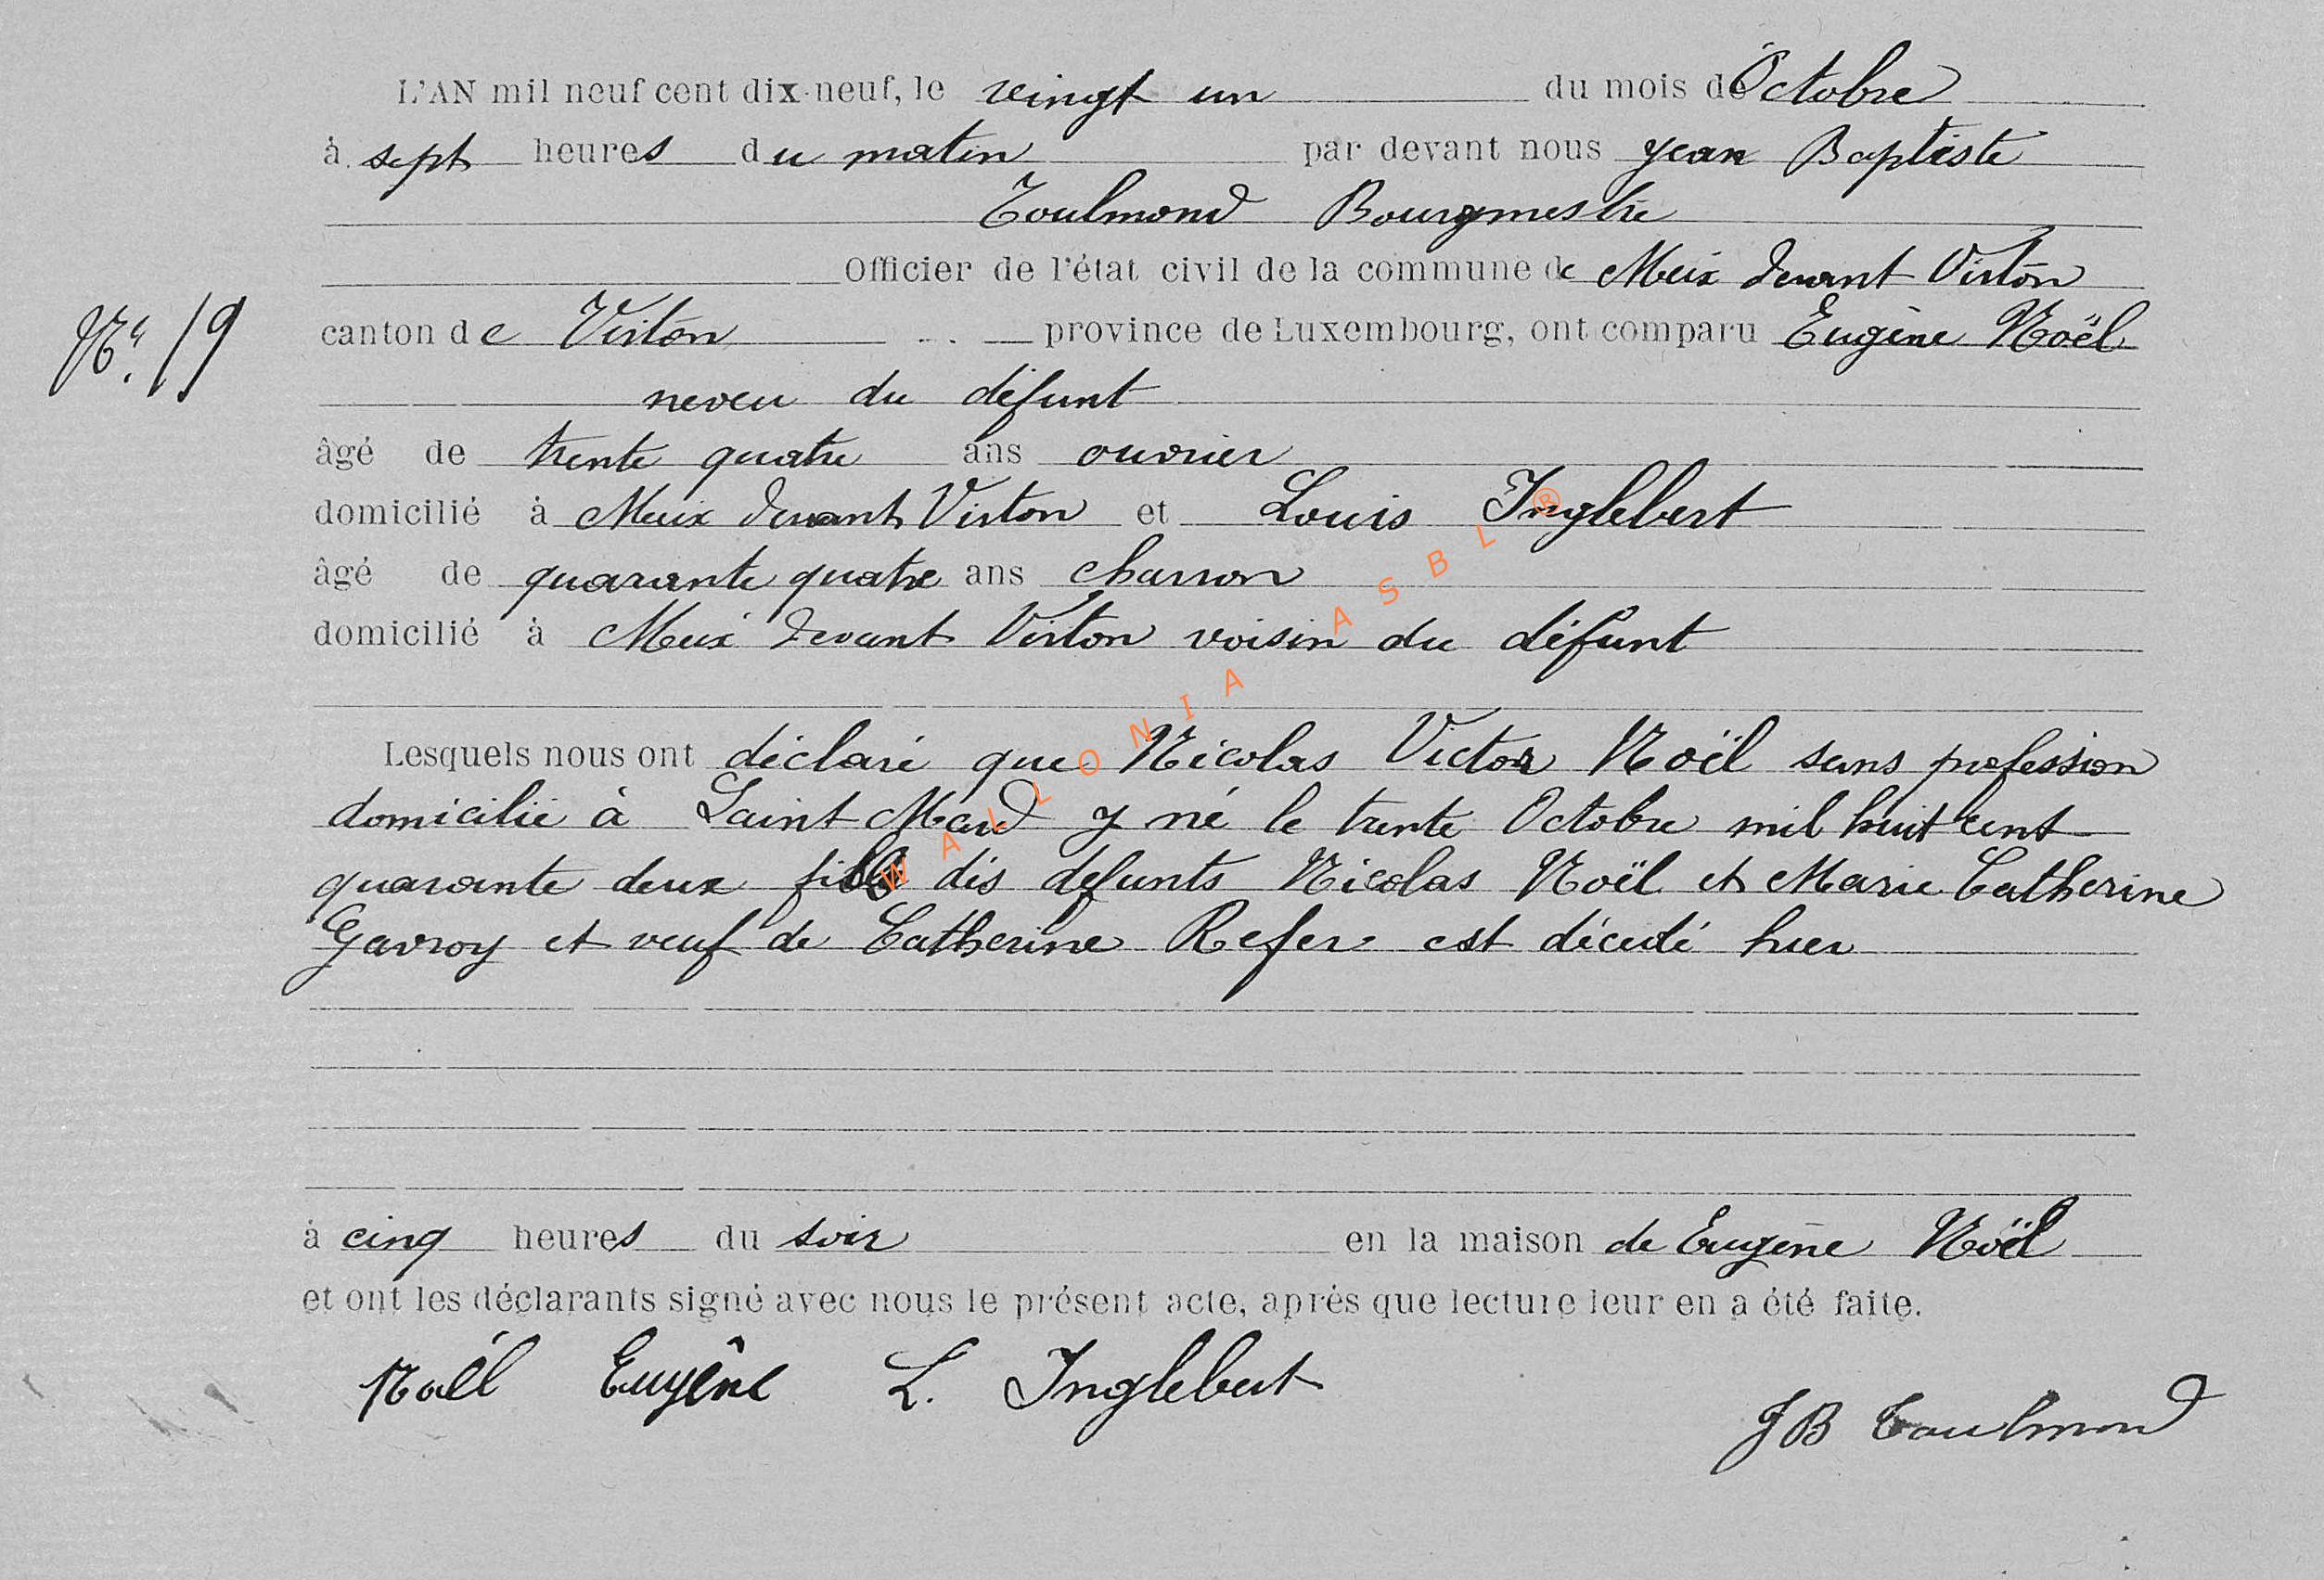 L'AN mil neuf cent dix-neuf, le vingt un du mois de Octobre
à sept heures du matin par devant nous Jean Baptiste
Toulmond Bourgmestre
Officier de l'état civil de la commune de Meix devant Virton
N° 19
canton de Virton province de Luxembourg, ont comparu Eugène Noël
neveu du défunt
âgé de trente quatre ans ouvrier
domicilié à Meix devant Virton et Louis Inglebert
âgé de quarante quatre ans charron
domicilié à Meix devant Virton voisin du défunt
Lesquels nous ont déclaré que Nicolas Victor Noël sans profession
domicilié à Saint Mard y né le trente Octobre mil huit cent
quarante deux fils des defunts Nicolas Noël et Marie Catherine
Gavroy et veuf de Catherine Refer est décédé hier
à cinq heures du soir en la maison de Eugène Noël
et ont les déclarants signé avec nous le présent acte, après que lecture leur en a été faite.
Noël Eugène L. Inglebert
JB Toulmond
WALLONIA ASBL ®